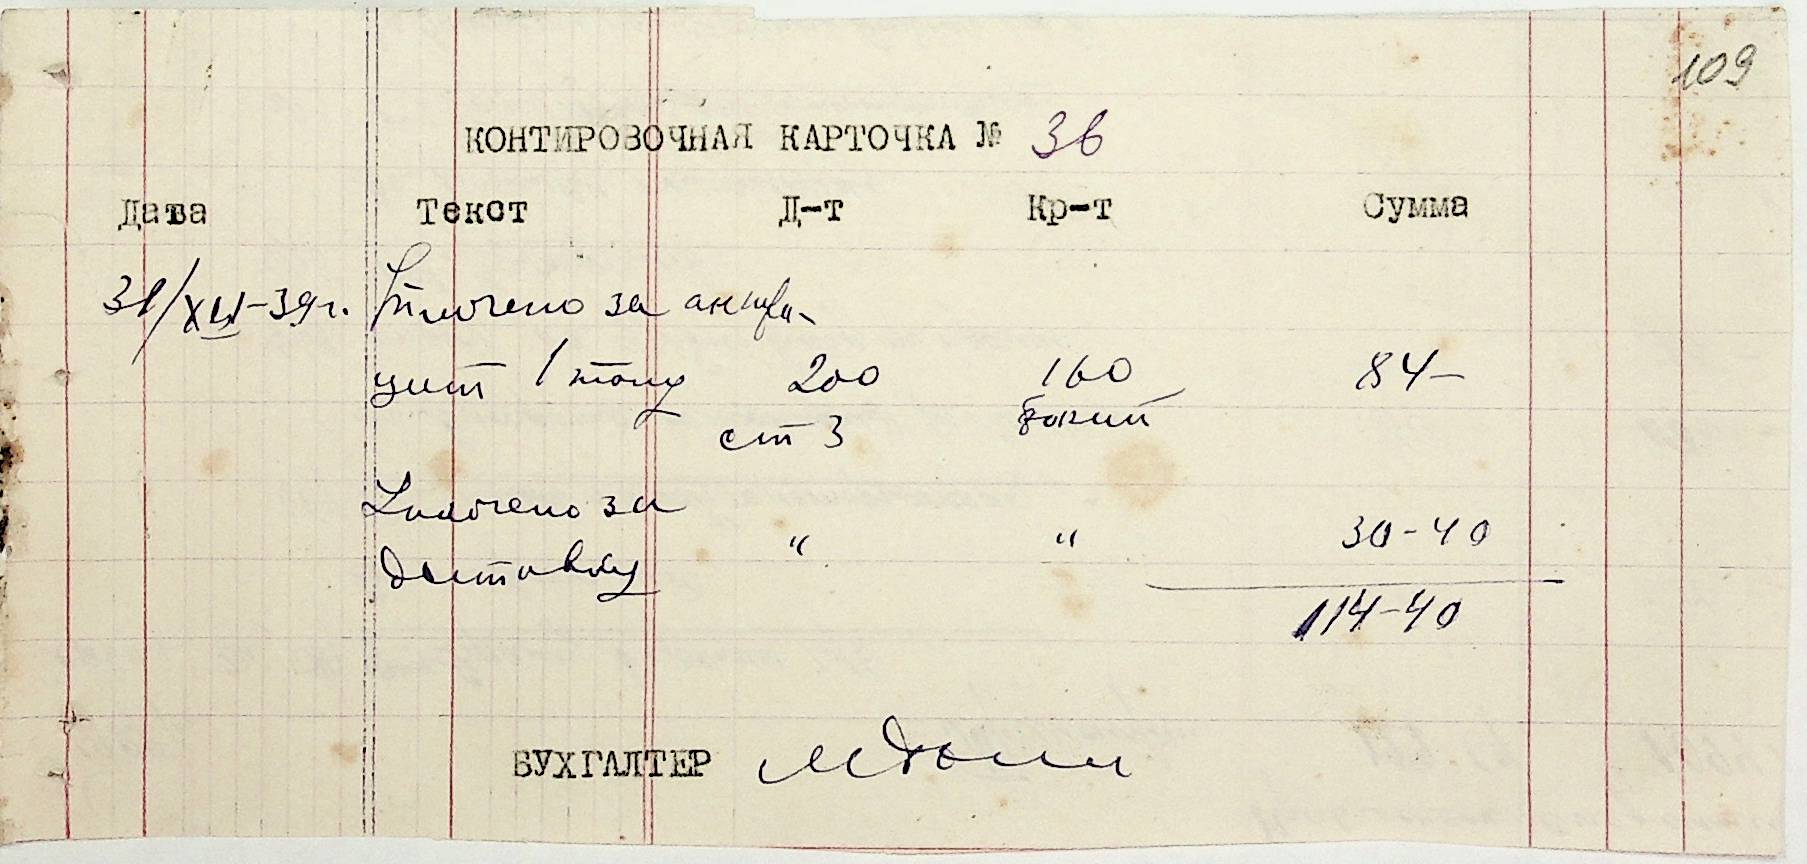 109
КОНТИРОВОЧНАЯ КАРТОЧКА № 36
Дата Текст Д-т Кр-т Сумма
31/XII-39г. Уплочено за антра-
цит 1 тону 200 160 84-
ст 3
Уплочено за
доставку " " 30-40
114-40
БУХГАЛТЕР